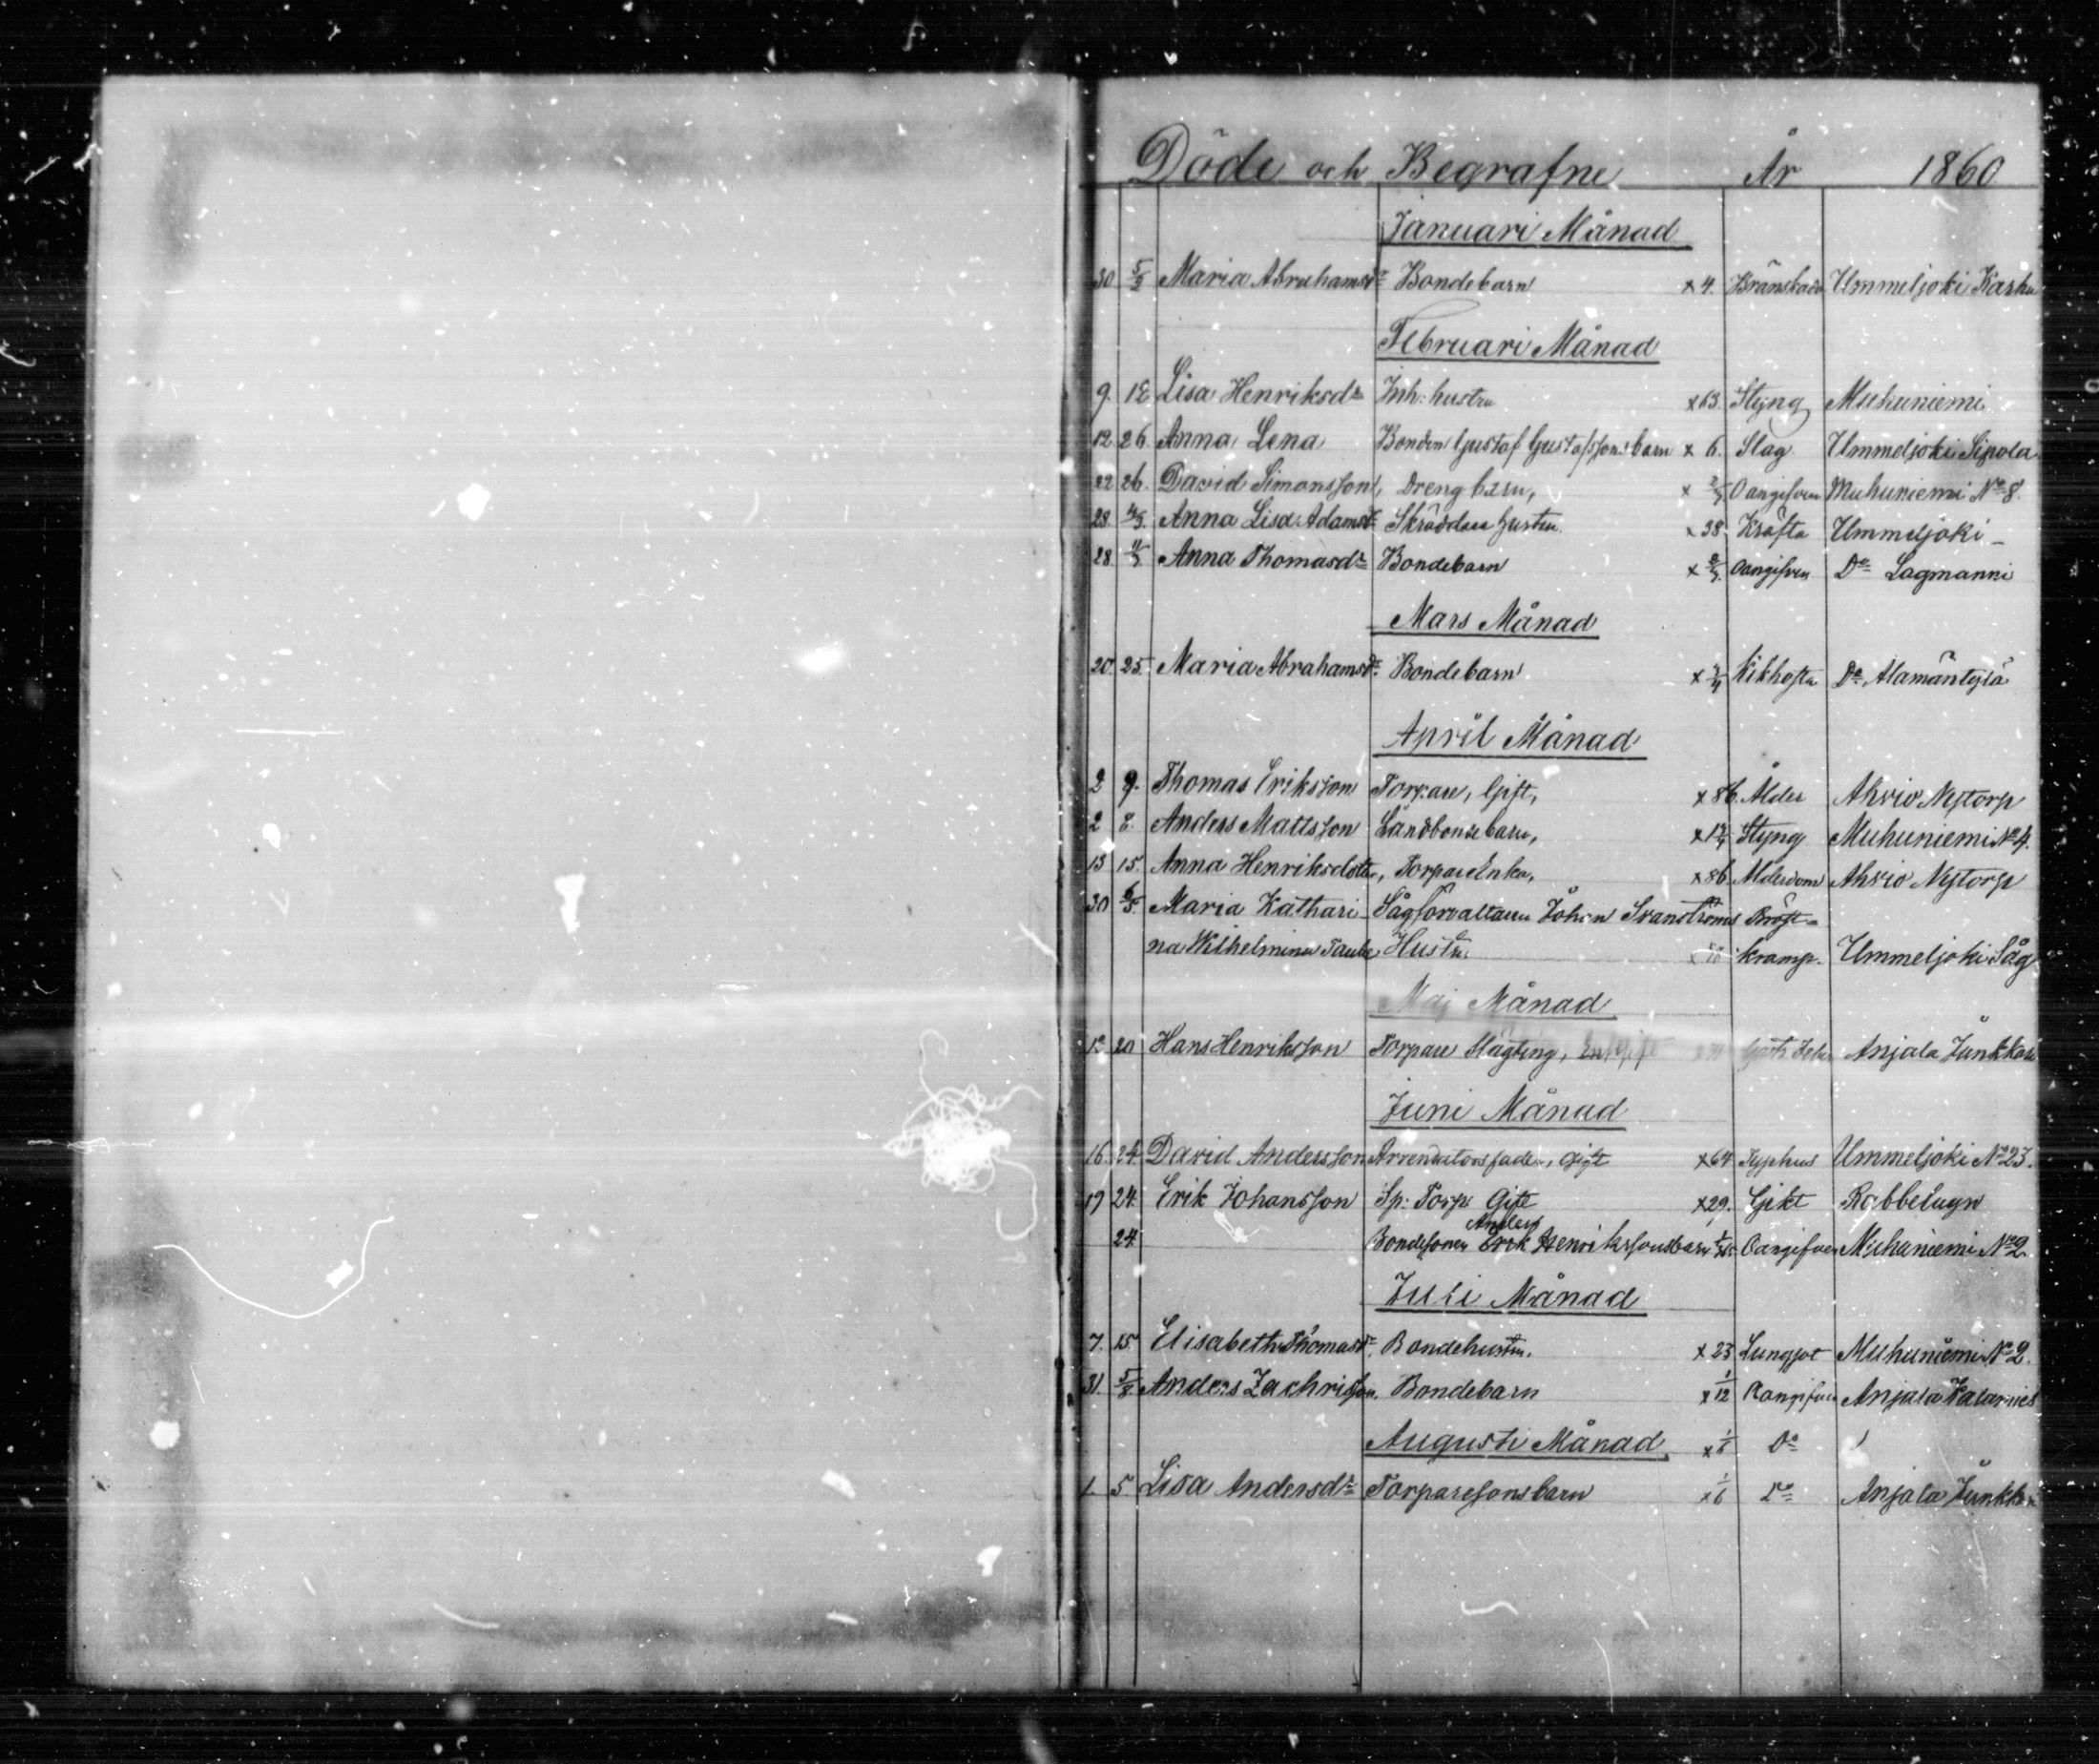 Döde och Begrafne År 1860
Januari Månad
30 5/2 Maria Abrahamsdr Bondebarn x 4. Brännskada Ummeljoki Karhu
Februari Månad
9. 12 Lisa Henriksdr Inh: hustru x 63. Styng Muhuniemi
12 26. Anna Lena Bonden Gustaf Gustafssons barn x 6. Slag Ummeljoki Sipola
22 26. David Simonsson, Drengbarn, x Oangifven Muhuniemi No 8.
28. 4/3. Anna Lisa Adamsdr Skräddare hustru x 38. Kräfta Ummeljoki
28. 4/3. Anna Thomasdr Bondebarn x Oangifven Do Lagmanni
Mars Månad
20. 25. Maria Abrahamsdr. Bondebarn x Kikhosta Do Alamäntylä
April Månad
2 9. Thomas Eriksson Torpare, Gift, x 86. Ålder Ahvio Nytorp
2 8. Anders Mattsson Landbondebarn, x Styng Muhuniemi No 4.
13 15. Anna Henriksdotter, Torpare Enka, x 86. Ålderdom Ahvio Nytorp
30 6/5. Maria Kathari- Sågförvaltaren Johan Svanströms Bröst-
na Wilhelmina Taube Hustru. kramp. Ummeljoki Såg
Maj Månad
12 20 Hans Henriksson Torpare Slägting, Enk Anjala Junkkari
Juni Månad
16. 24. David Andersson Arrendators fader, gift x 64 Typhus Ummeljoki No 23.
19 24. Erik Johansson Sp: Torp: Gift x 29. Gikt Rabbelugn
24. Bondesonen Erik Anders Henrikssons barn Oangifven Muhuniemi No 2.
Juli Månad
7. 15. Elisabeth Thomasdr. Bondehustru. x 23 Lungsot Muhuniemi No 2.
31. 5/8 Anders Zachrisson. Bondebarn x 1/12 Oangifven Anjala
Augusti Månad. x Do
1. 5. Lisa Andersdr Torparesonsbarn x 1/6 Do Anjala Junkkari